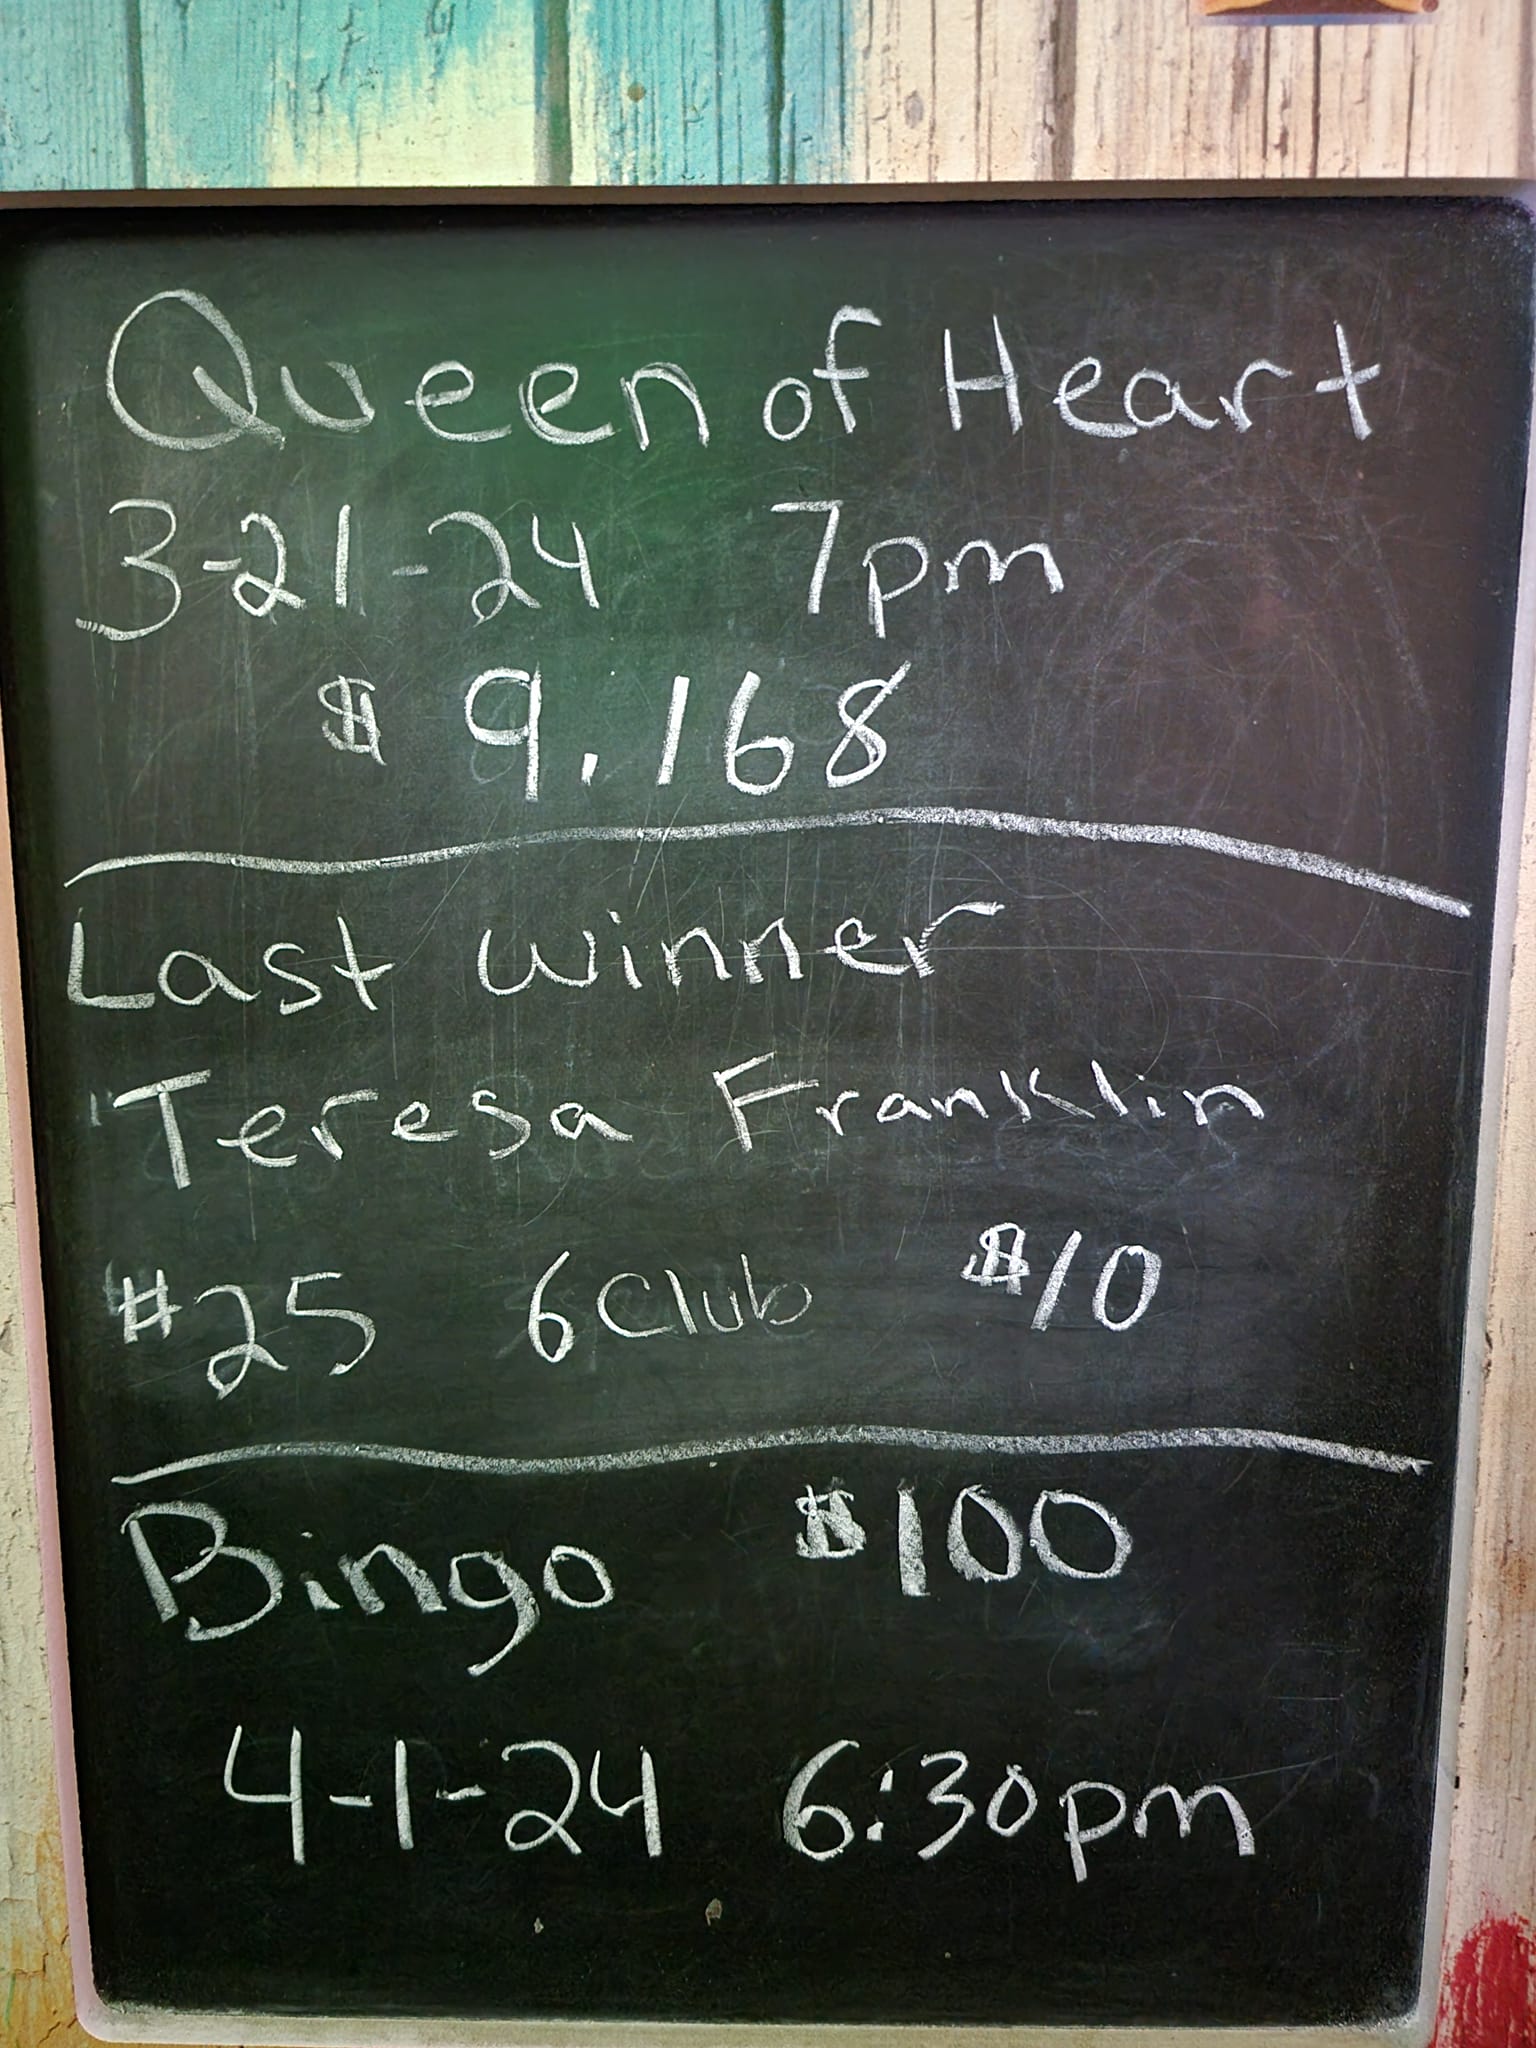 Queen of Heart
3-21-24 7pm
$ 9.168
Last winner
Teresa Franklin
#25 6 Club $10
Bingo $100
4-1-24 6:30pm